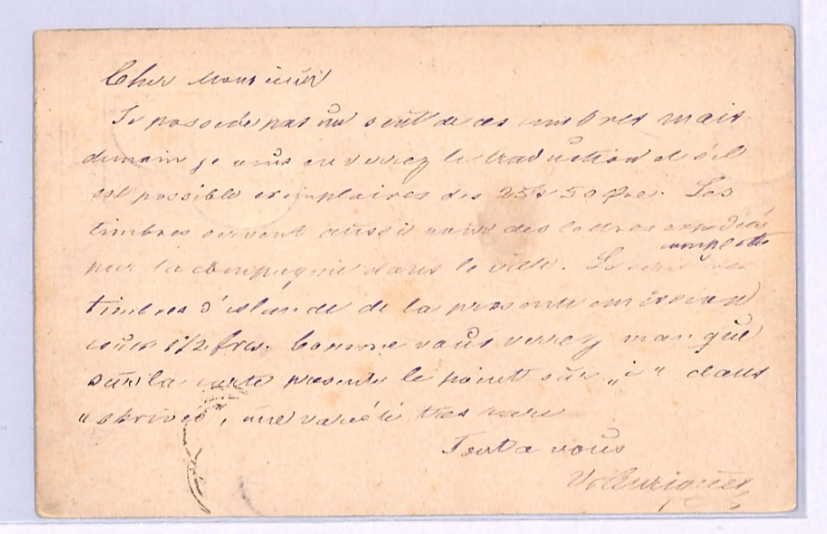 Cher Monsieur
Je possède pas un seul de ces timbres mais
demain je vous enverrez le traduction et s'il
est possible exemplaires des 25 & 50 Øre. Les
timbres servent aussi pour des lettres expediés
par la compagnie dans la ville. complette
timbres d'Islande de la presente emission
cour 1/2 frcs. Comme vous verrez manque
sur la carte presente le point sur „i" dans
„skrives, une varieté tres rare
Tout a vous